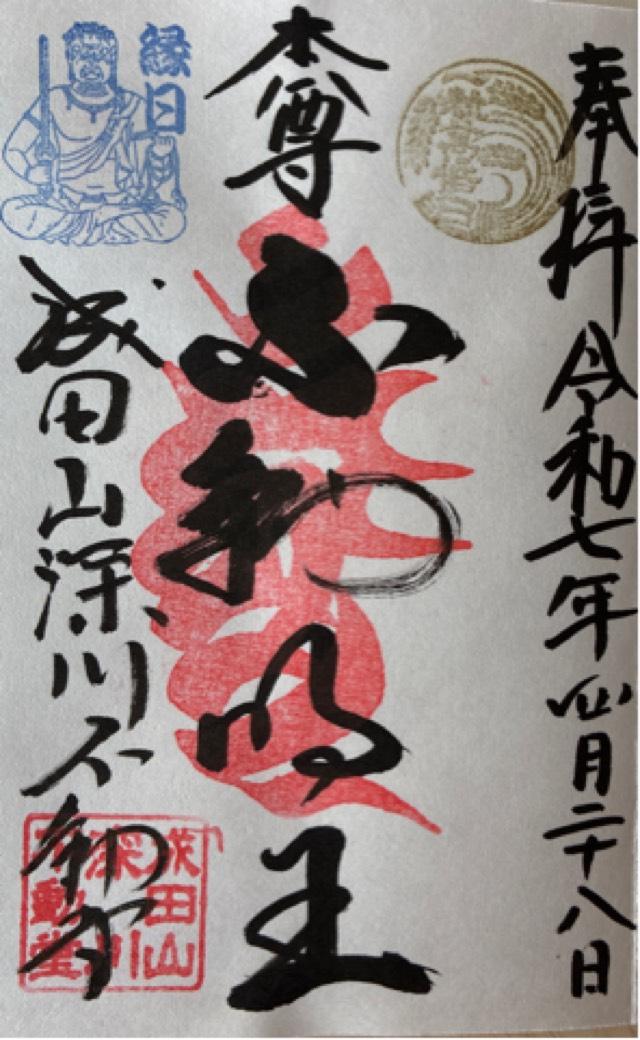 奉拝 令和七年四月二十八日
本尊 不動明王
縁日
成田山深川不動堂
成田山
深川
不動堂